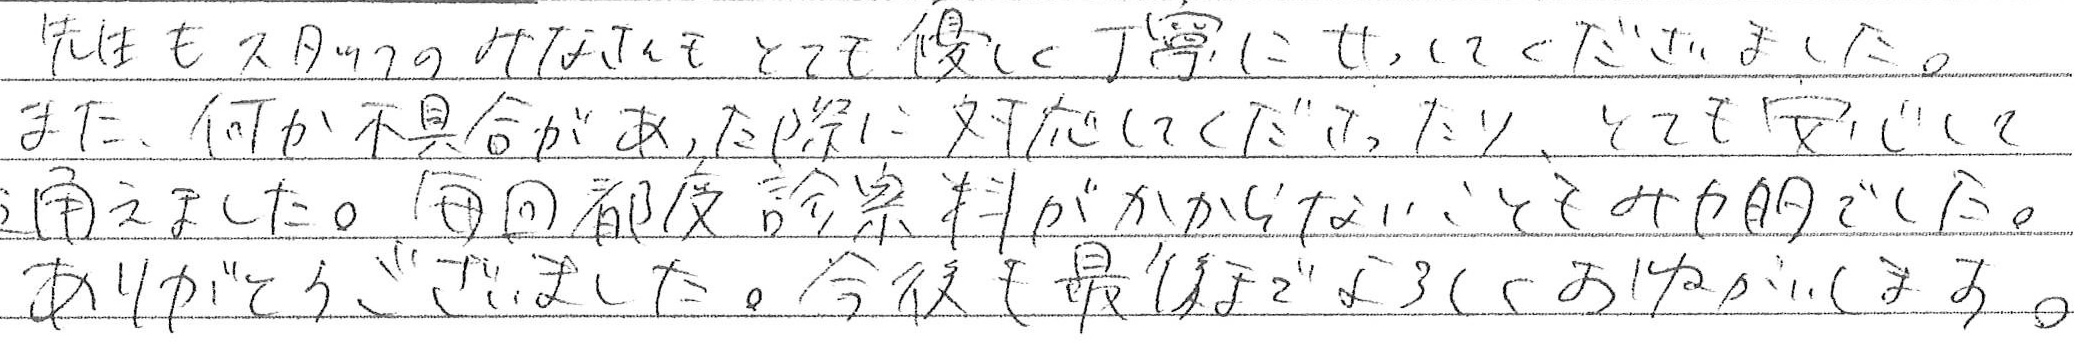 先生もスタッフのみなさんもとても優しく丁寧にせっしてくださいました。
また、何か不具合があった際に対応してくださったり、とても安心して
通えました。毎回都度診察料がかからないこともみ力的でした。
ありがとうございました。今後も最後までよろしくおねがいします。